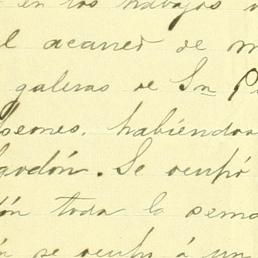 en los trabajos
l acarreo de m
galeras de Sn P
habiéndos
godón. Se ocupó
ón toda la sema
se ocupó á un